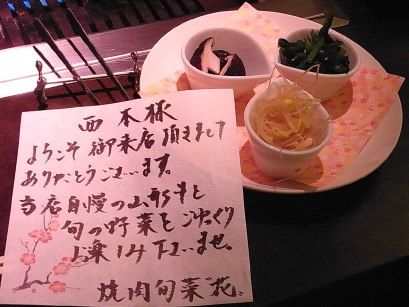 西本様
ようこそ御来店頂きまして
ありがとうございます。
当店自慢の山形牛と
旬の野菜をごゆっくり
お楽しみ下さいませ。
焼肉旬菜"花"